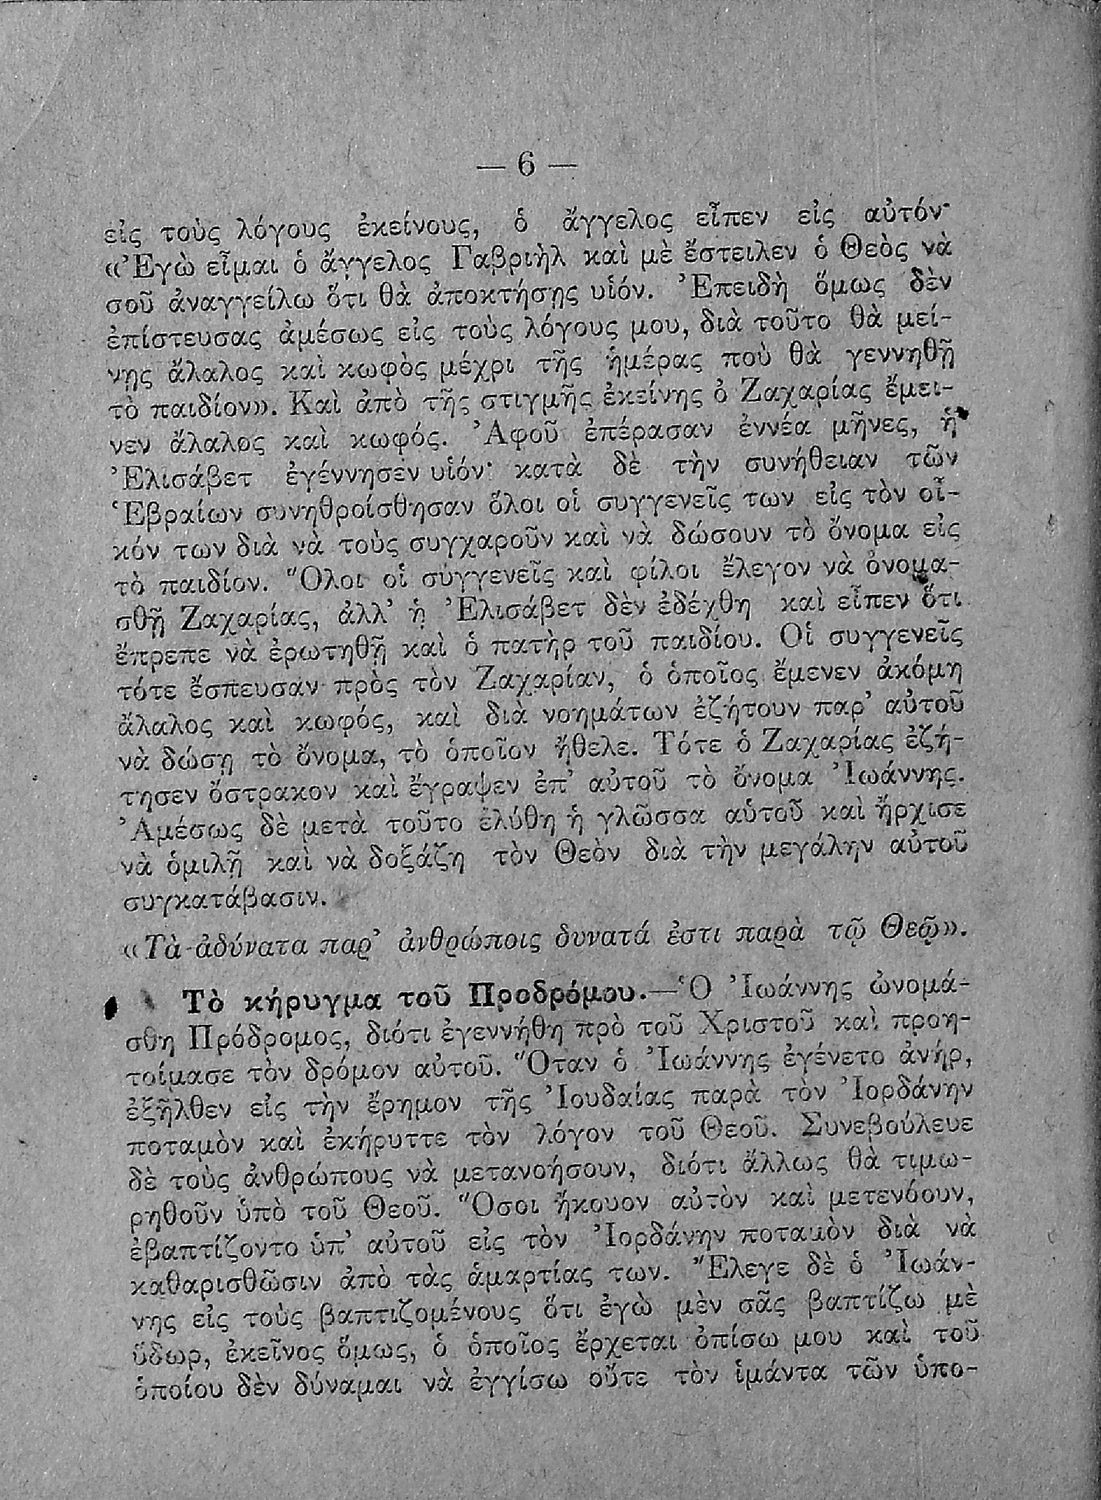 — 6 —
εἰς τοὺς λόγους ἐκείνους, ὁ ἄγγελος εἶπεν εἰς αὐτόν·
«Ἐγὼ εἶμαι ὁ ἄγγελος Γαβριὴλ καὶ μὲ ἔστειλεν ὁ Θεὸς νὰ
σοῦ ἀναγγείλω ὅτι θὰ ἀποκτήσῃς υἱόν. Ἐπειδὴ ὅμως δὲν
ἐπίστευσας ἀμέσως εἰς τοὺς λόγους μου, διὰ τοῦτο θὰ μεί-
νῃς ἄλαλος καὶ κωφὸς μέχρι τῆς ἡμέρας ποὺ θὰ γεννηθῇ
τὸ παιδίον». Καὶ ἀπὸ τῆς στιγμῆς ἐκείνης ὁ Ζαχαρίας ἔμει-
νεν ἄλαλος καὶ κωφός. Ἀφοῦ ἐπέρασαν ἐννέα μῆνες, ἡ
Ἐλισάβετ ἐγέννησεν υἱόν· κατὰ δὲ τὴν συνήθειαν τῶν
Ἑβραίων συνηθροίσθησαν ὅλοι οἱ συγγενεῖς των εἰς τὸν οἶ-
κόν των διὰ νὰ τοὺς συγχαροῦν καὶ νὰ δώσουν τὸ ὄνομα εἰς
τὸ παιδίον. Ὅλοι οἱ συγγενεῖς καὶ φίλοι ἔλεγον νὰ ὀνομα-
σθῇ Ζαχαρίας, ἀλλ' ἡ Ἐλισάβετ δὲν ἐδέχθη καὶ εἶπεν ὅτι
ἔπρεπε νὰ ἐρωτηθῇ καὶ ὁ πατὴρ τοῦ παιδίου. Οἱ συγγενεῖς
τότε ἔσπευσαν πρὸς τὸν Ζαχαρίαν, ὁ ὁποῖος ἔμενεν ἀκόμη
ἄλαλος καὶ κωφός, καὶ διὰ νοημάτων ἐζήτουν παρ' αὐτοῦ
νὰ δώσῃ τὸ ὄνομα, τὸ ὁποῖον ἤθελε. Τότε ὁ Ζαχαρίας ἐζή-
τησεν ὄστρακον καὶ ἔγραψεν ἐπ' αὐτοῦ τὸ ὄνομα Ἰωάννης.
Ἀμέσως δὲ μετὰ τοῦτο ἐλύθη ἡ γλῶσσα αὐτοῦ καὶ ἤρχισε
νὰ ὁμιλῇ καὶ νὰ δοξάζῃ τὸν Θεὸν διὰ τὴν μεγάλην αὐτοῦ
συγκατάβασιν.
«Τὰ ἀδύνατα παρ' ἀνθρώποις δυνατά ἐστι παρὰ τῷ Θεῷ».
Τὸ κήρυγμα τοῦ Προδρόμου.—Ὁ Ἰωάννης ὠνομά-
σθη Πρόδρομος, διότι ἐγεννήθη πρὸ τοῦ Χριστοῦ καὶ προη-
τοίμασε τὸν δρόμον αὐτοῦ. Ὅταν ὁ Ἰωάννης ἐγένετο ἀνήρ,
ἐξῆλθεν εἰς τὴν ἔρημον τῆς Ἰουδαίας παρὰ τὸν Ἰορδάνην
ποταμὸν καὶ ἐκήρυττε τὸν λόγον τοῦ Θεοῦ. Συνεβούλευε
δὲ τοὺς ἀνθρώπους νὰ μετανοήσουν, διότι ἄλλως θὰ τιμω-
ρηθοῦν ὑπὸ τοῦ Θεοῦ. Ὅσοι ἤκουον αὐτὸν καὶ μετενόουν,
ἐβαπτίζοντο ὑπ' αὐτοῦ εἰς τὸν Ἰορδάνην ποταμὸν διὰ νὰ
καθαρισθῶσιν ἀπὸ τὰς ἁμαρτίας των. Ἔλεγε δὲ ὁ Ἰωάν-
νης εἰς τοὺς βαπτιζομένους ὅτι ἐγὼ μὲν σᾶς βαπτίζω μὲ
ὕδωρ, ἐκεῖνος ὅμως, ὁ ὁποῖος ἔρχεται ὀπίσω μου καὶ τοῦ
ὁποίου δὲν δύναμαι νὰ ἐγγίσω οὔτε τὸν ἱμάντα τῶν ὑπο-